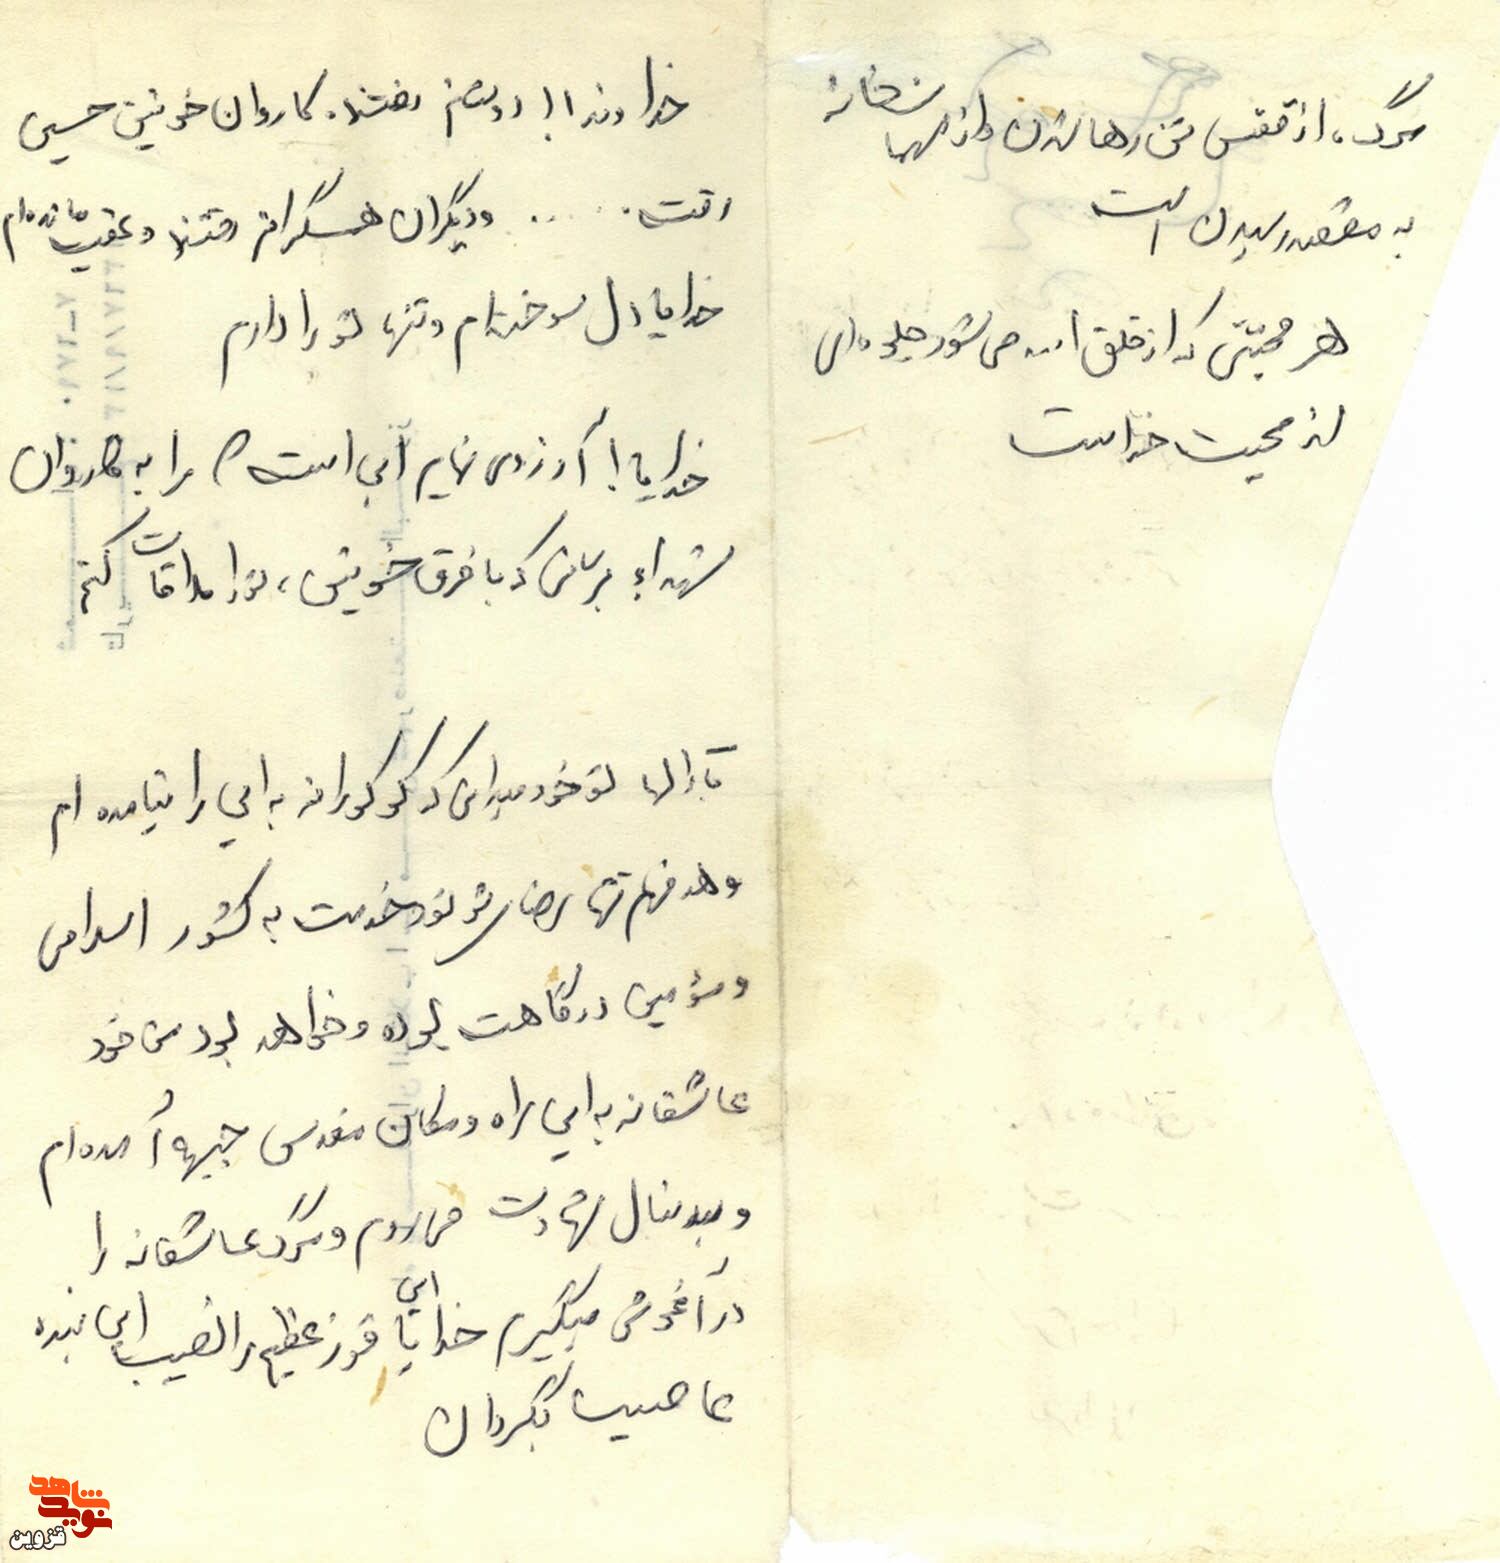 مرگ، از قفس تن رها شدن و از مهمانخانه
به مقصد رسیدن است
هر محبتی که از خلق الله می‌شود جلوه‌ای
از محبت خداست
خداوندا! دوستانم رفتند. کاروان خونین حسین
رفت ..... دیگران همسنگرانم رفتند و عقب مانده‌ام
خدایا دل سوخته‌ام و تنها تو را دارم
خدایا! آرزوی نهایم این است که مرا به کاروان
شهداء برسانی که با فرق خونین، تو را ملاقات کنم
بارالها تو خود میدانی که کورکورانه به این راه نیامده‌ام
و هدفم تنها رضای تو و خدمت به کشور اسلامی
و مؤمنین درگاهت بوده و خواهد بود من خود
عاشقانه به این راه و مکان مقدس جبهه آمده‌ام
و بدنبال شهادت می‌روم و مرگ عاشقانه را
در آغوش میگیرم خدایا این فوز عظیم را نصیب این بنده
عاصیت بگردان
شاهد
نوید
قزوین